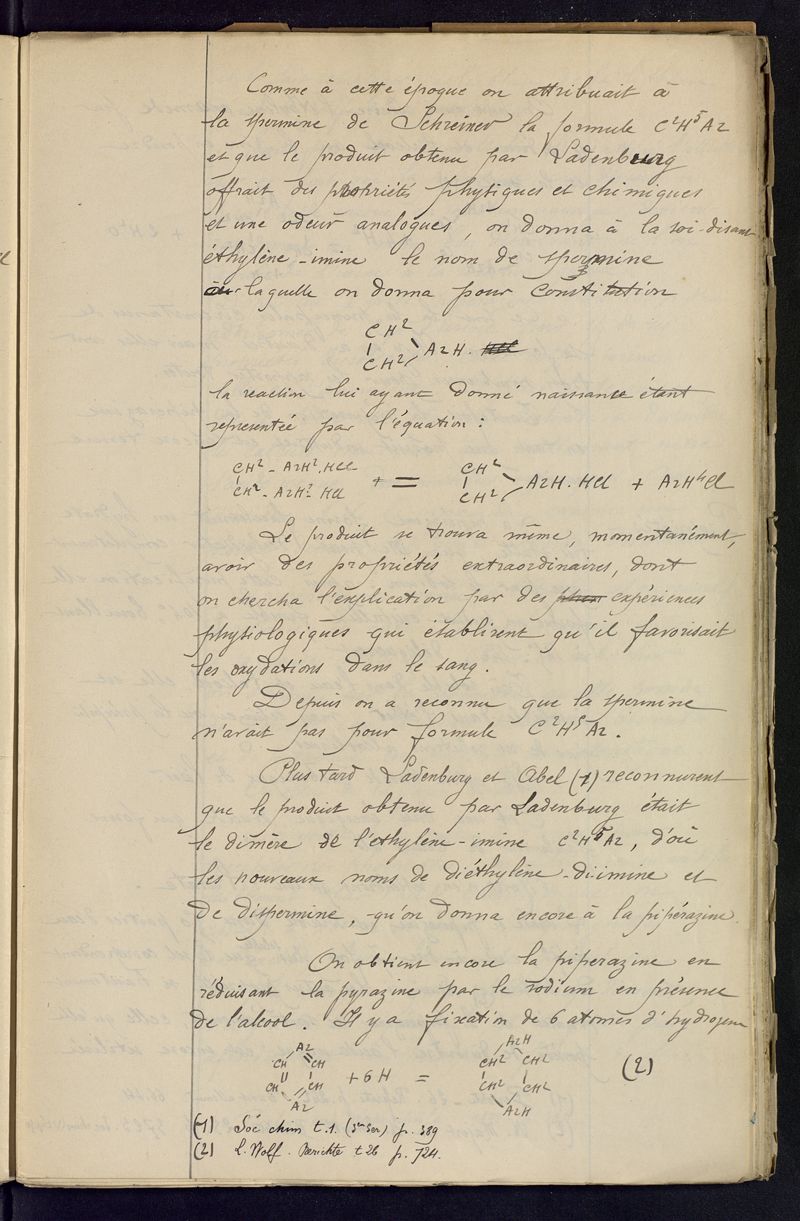 Comme à cette époque on attribuait à
la spermine de Schreiner la formule C²H⁵Az
et que le produit obtenu par Ladenburg
offrait des propriétés physiques et chimiques
et une odeur analogues, on donna à la soi-disant
éthylène-imine le nom de spermine
à laquelle on donna pour constitution
CH²
CH² AzH. HCl
la reaction lui ayant donné naissance étant
representée par l'équation :
CH² - AzH².HCl
CH² - AzH² HCl + = CH² CH² AzH. HCl + AzH⁴Cl
Le produit se trouva même, momentanément,
avoir des propriétés extraordinaires, dont
on chercha l'explication par des expériences
physiologiques qui établirent qu'il favorisait
les oxydations dans le sang.
Depuis on a reconnu que la spermine
n'avait pas pour formule C²H⁵Az.
Plus tard Ladenburg et Abel (1) reconnurent
que le produit obtenu par Ladenburg était
le dimère de l'ethylène-imine C²H⁵Az, d'où
les nouveaux noms de diéthylène-diimine et
de dispermine, qu'on donna encore à la pipérazine.
On obtient encore la piperazine en
réduisant la pyrazine par le sodium en présence
de l'alcool. Il y a fixation de 6 atomes d'hydrogène
Az AzH
CH CH CH² CH²
+ 6H = (2)
CH CH CH² CH²
Az AzH
(1) Soc chim t.1. (3me Ser) p. 389
(2) L. Wolf. Berichte t 26 p. 724.